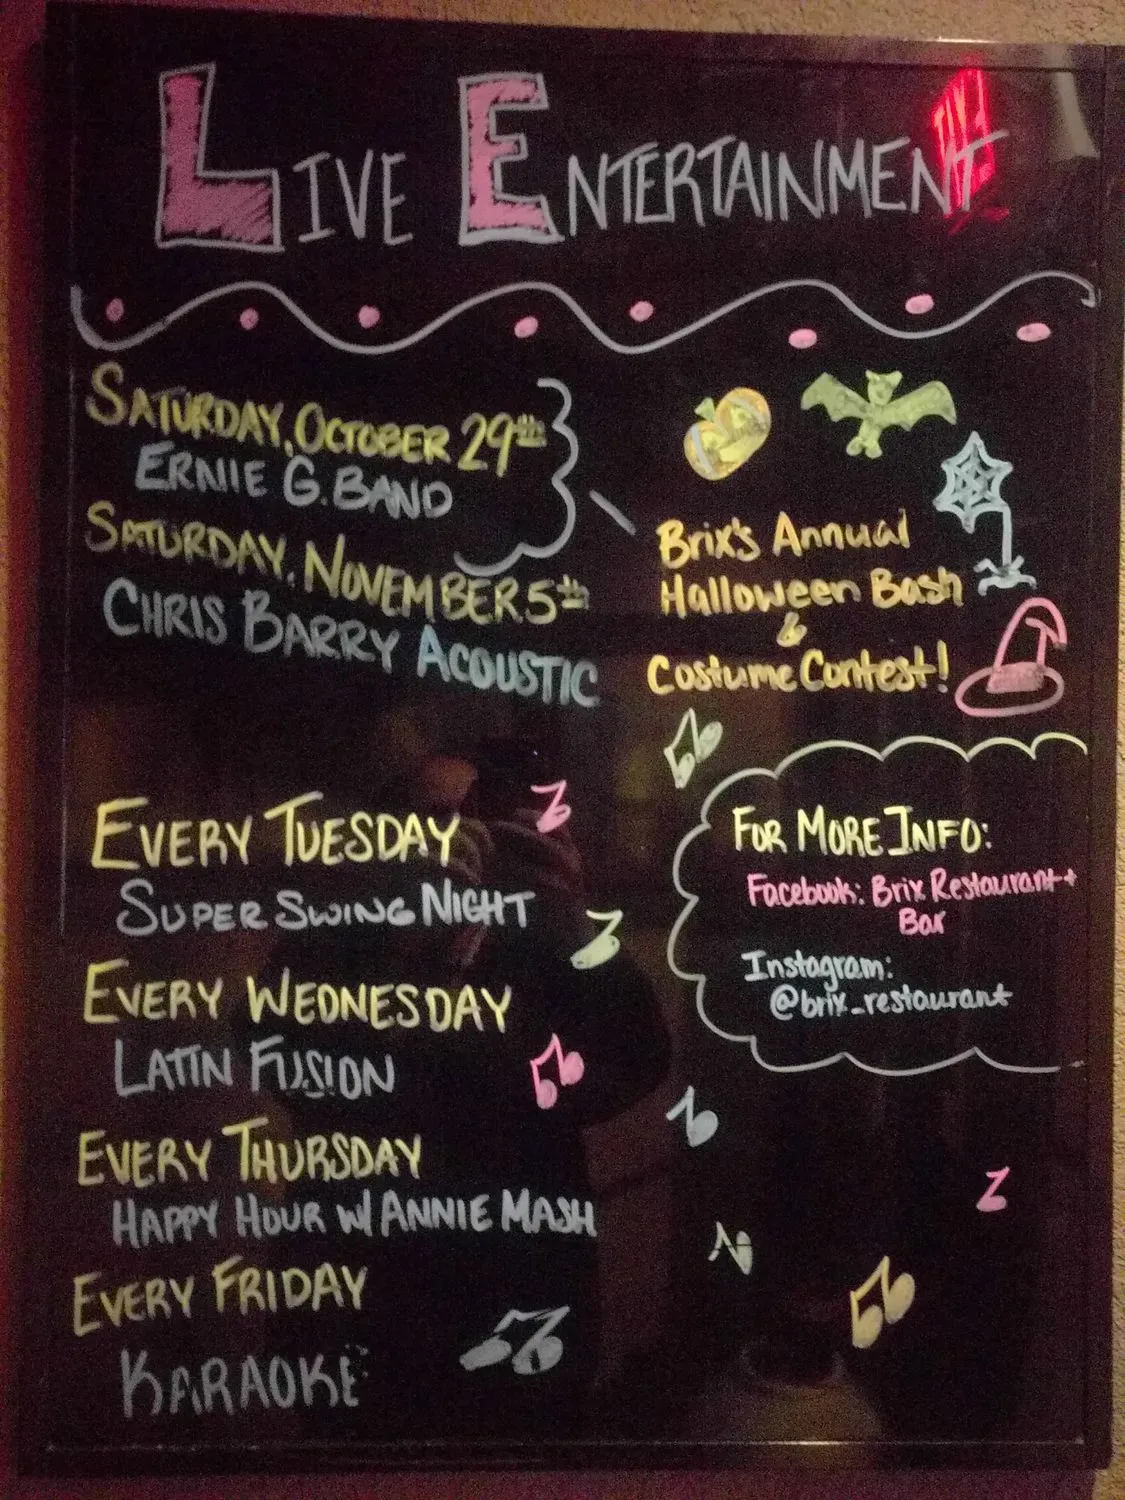 LIVE ENTERTAINMENT
SATURDAY, OCTOBER 29th
ERNIE G. BAND
SATURDAY, NOVEMBER 5th
CHRIS BARRY ACOUSTIC
Brix's Annual
Halloween Bash
&
Costume Contest!
EVERY TUESDAY
SUPER SWING NIGHT
EVERY WEDNESDAY
LATIN FUSION
EVERY THURSDAY
HAPPY HOUR W/ ANNIE MASH
EVERY FRIDAY
KARAOKE
FOR MORE INFO:
Facebook: Brix Restaurant +
Bar
Instagram:
@brix_restaurant